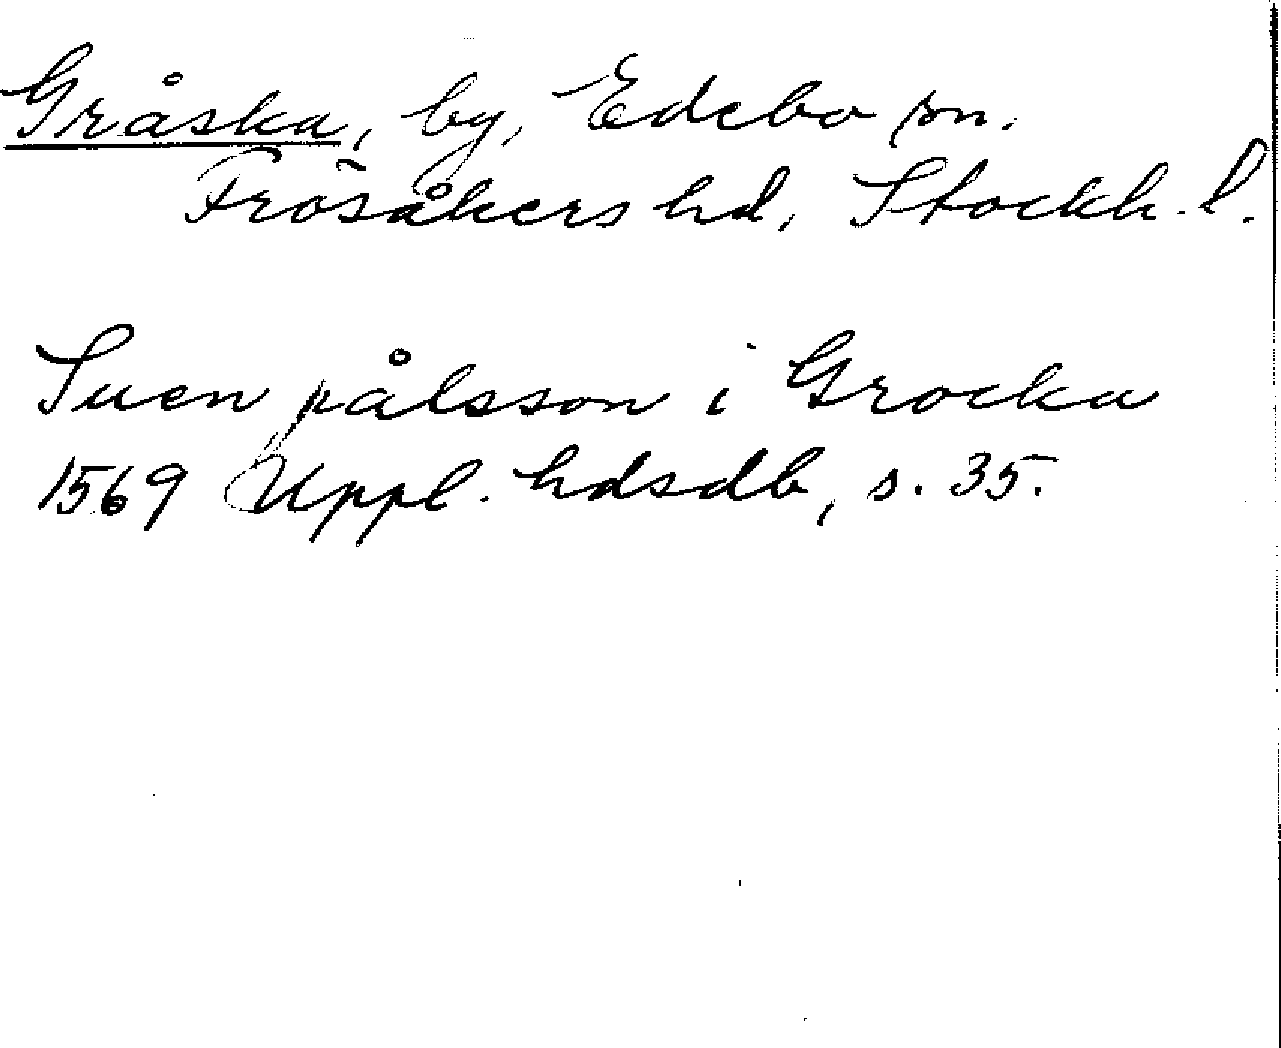 Gråska, by, Edebo sn.
Frösåkers hd, Stockh. l.
Suen pålsson i Grocka
1569 Uppl. hdsdb, s. 35.